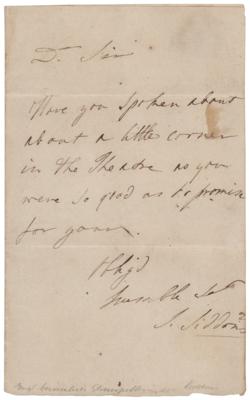 Dr. Sir
Have you spoken about
about a little corner
in the Theatre as you
were so good as to promise
for your
Oblig'd
humble Sert
S. Siddons